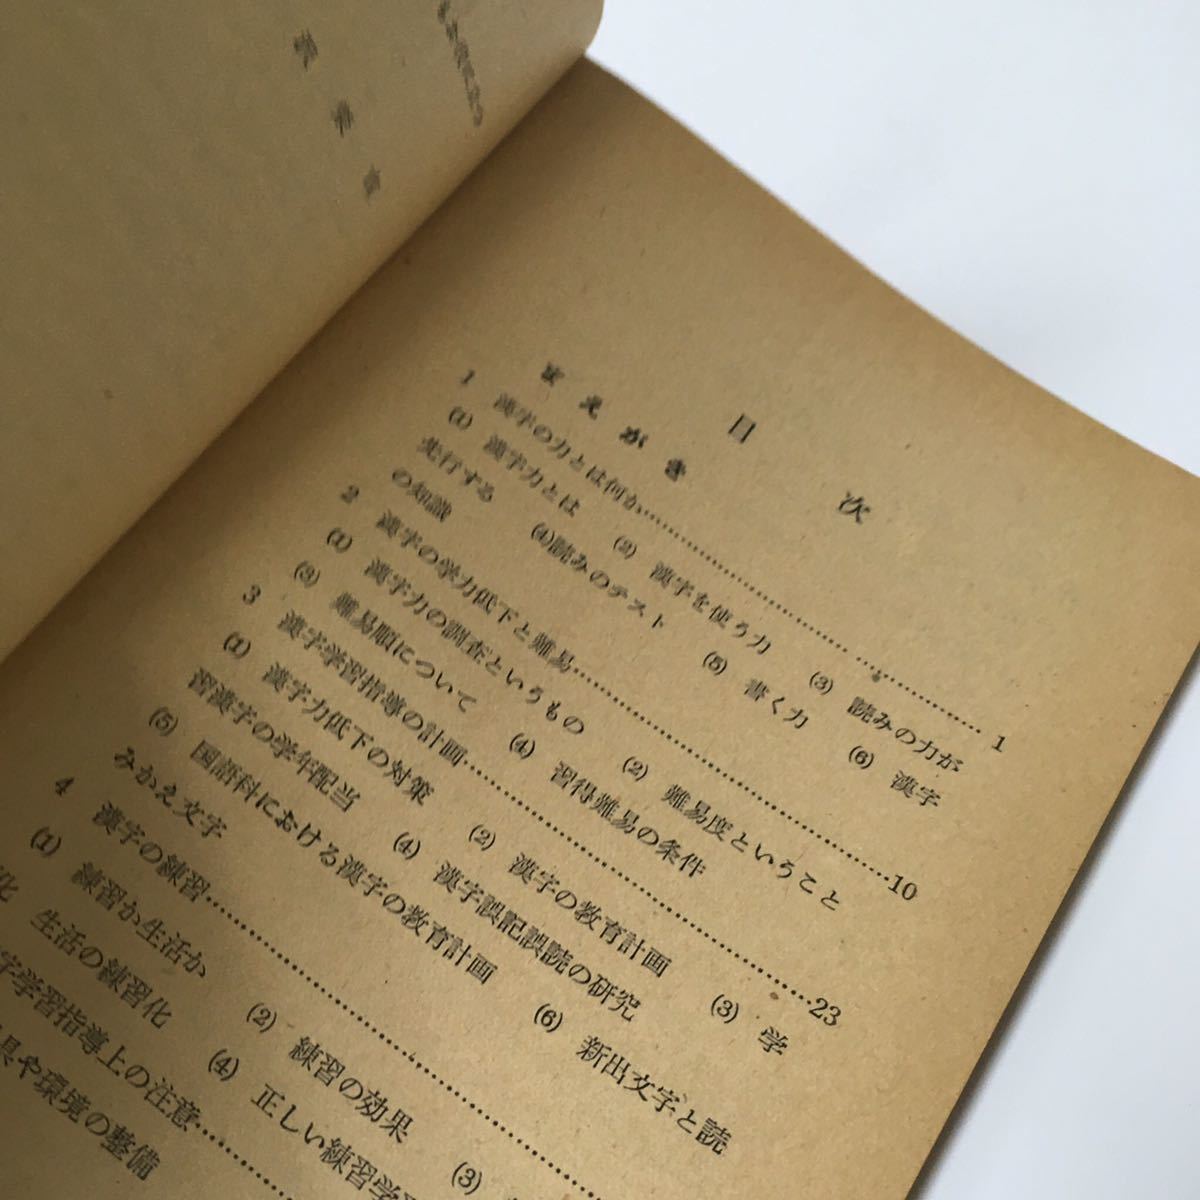 目次
まえがき
1 漢字の力とは何か……………………………1
(1) 漢字力とは (2) 漢字を使う力 (3) 読みの力が
先行する (4)読みのテスト (5) 書く力 (6) 漢字
の知識
2 漢字の学力低下と難易……………………………10
(1) 漢字力の調査というもの (2) 難易度ということ
(3) 難易順について (4) 習得難易の条件
3 漢字学習指導の計画……………………………23
(1) 漢字力低下の対策 (2) 漢字の教育計画 (3) 学
習漢字の学年配当 (4) 漢字誤記誤読の研究
(5) 国語科における漢字の教育計画 (6) 新出文字と読
みかえ文字
4 漢字の練習……………………………
(1) 練習か生活か (2) 練習の効果 (3)
化 生活の練習化 (4) 正しい練習学
字学習指導上の注意……………
具や環境の整備